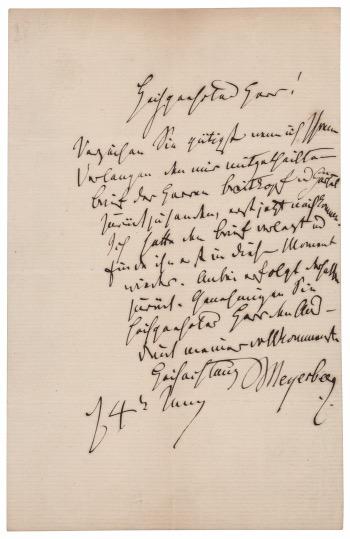 Hochgeehrter Herr!
Verzeihen Sie gütigst wenn ich Ihrem
Verlangen den mir mitgetheilten
brief der Herren breitkopf und Härtel
zurückzusenden, erst jetzt nachkomme.
Ich hatte den brief verlegt und
finde ihn erst in diesem Moment
wieder. Anbei erfolgt derselbe
zurück. Genehmigen Sie
hochgeehrter Herr den Aus-
druck meiner vollkommensten
Hochachtung Meyerbeer
d 4t Juny